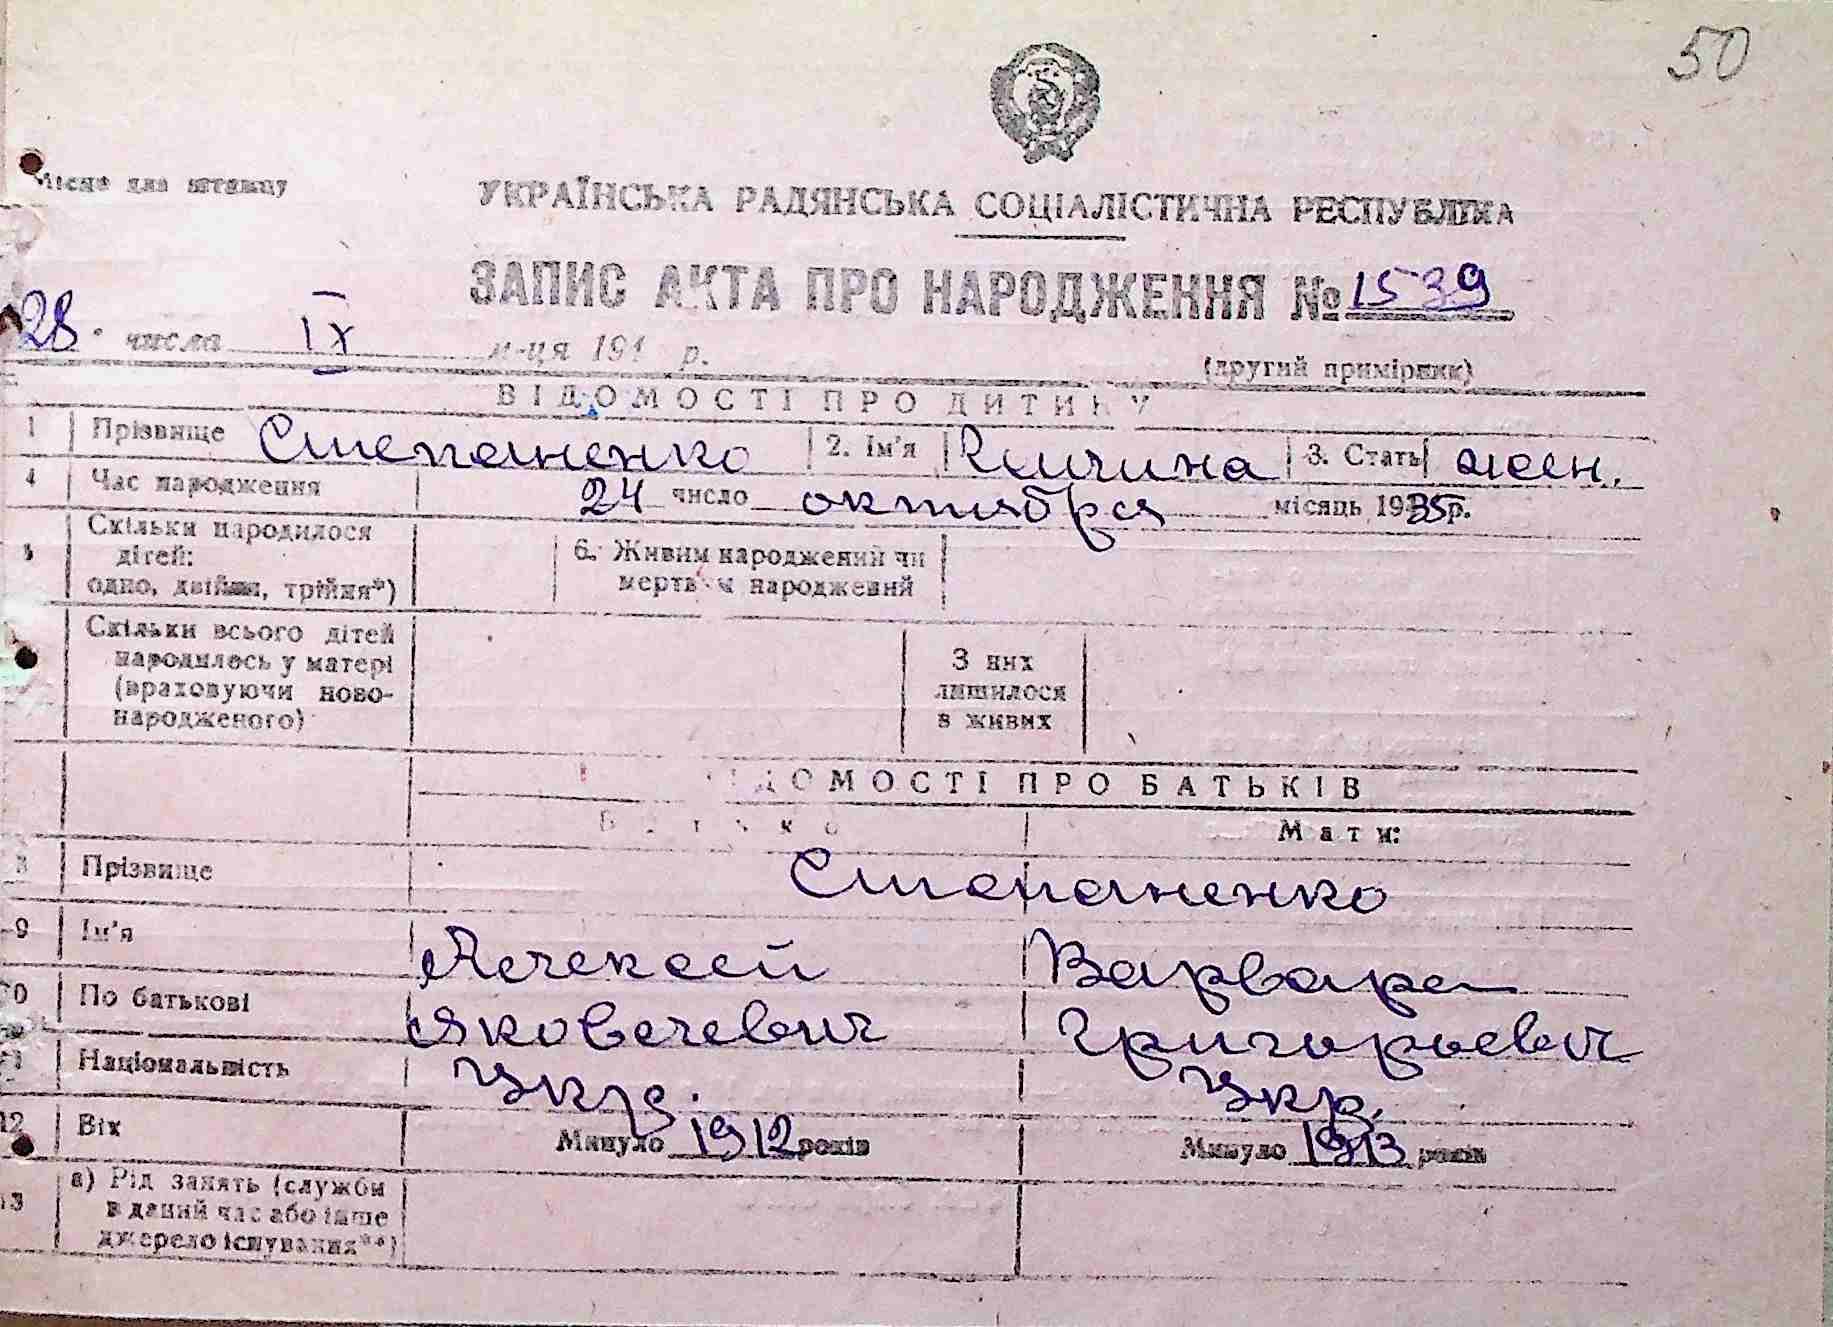 50
Місце для штампу
УКРАЇНСЬКА РАДЯНСЬКА СОЦІАЛІСТИЧНА РЕСПУБЛІКА
ЗАПИС АКТА ПРО НАРОДЖЕННЯ № 1539
28 числа IX м-ця 191 р.
(другий примірник)
ВІДОМОСТІ ПРО ДИТИНУ
1 Прізвище Степаненко 2. Ім'я 3. Стать жен.
4 Час народження 24 число октября місяць 1935 р.
5 Скільки народилося дітей: одно, двійня, трійня*)
6. Живим народжений чи мертвим народжений
Скільки всього дітей народилось у матері (враховуючи новонародженого)
З них лишилося в живих
ВІДОМОСТІ ПРО БАТЬКІВ
Батько Мати:
8 Прізвище Степаненко
9 Ім'я Алексей Варвара
10 По батькові Яковлевич Григорьевич
11 Національність Укр. Укр.
12 Вік Минуло 1912 років Минуло 1913 років
13 а) Рід занять (служби в даний час або інше джерело існування**)